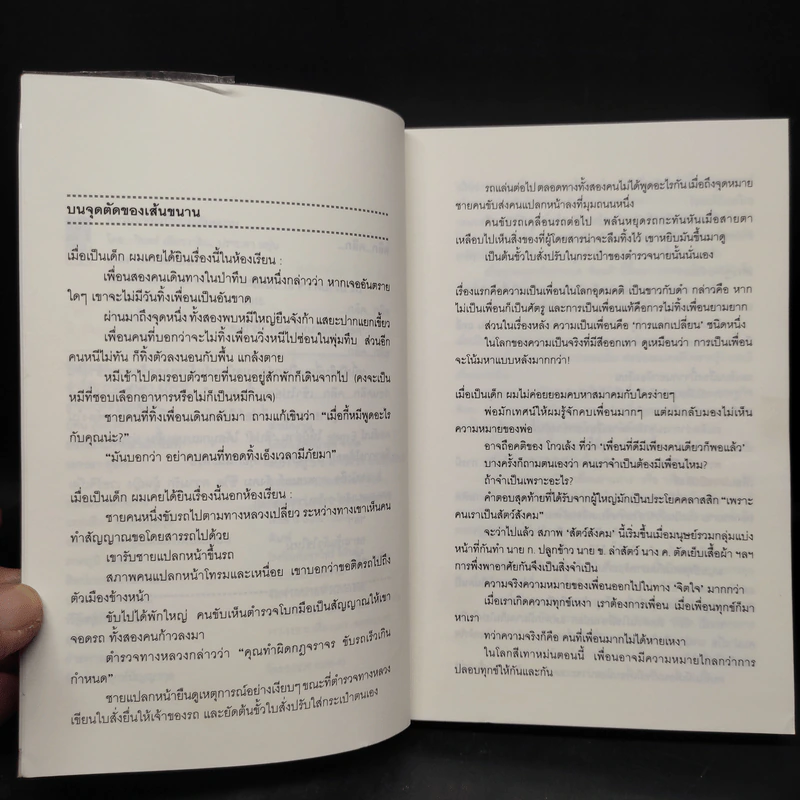 บนจุดตัดของเส้นขนาน
เมื่อเป็นเด็ก ผมเคยได้ยินเรื่องนี้ในห้องเรียน :
เพื่อนสองคนเดินทางในป่าทึบ คนหนึ่งกล่าวว่า หากเจออันตราย
ใดๆ เขาจะไม่มีวันทิ้งเพื่อนเป็นอันขาด
ผ่านมาถึงจุดหนึ่ง ทั้งสองพบหมีใหญ่ยืนจังก้า แสยะปากแยกเขี้ยว
เพื่อนคนที่บอกว่าจะไม่ทิ้งเพื่อนวิ่งหนีไปซ่อนในพุ่มทึบ ส่วนอีก
คนหนีไม่ทัน ก็ทิ้งตัวลงนอนกับพื้น แกล้งตาย
หมีเข้าไปดมรอบตัวชายที่นอนอยู่สักพักก็เดินจากไป (คงจะเป็น
หมีที่ชอบเลือกอาหารหรือไม่ก็เป็นหมีกินเจ)
ชายคนที่ทิ้งเพื่อนเดินกลับมา ถามแก้เขินว่า “เมื่อกี้หมีพูดอะไร
กับคุณน่ะ?”
“มันบอกว่า อย่าคบคนที่ทอดทิ้งเอ็งเวลามีภัยมา”
เมื่อเป็นเด็ก ผมเคยได้ยินเรื่องนี้นอกห้องเรียน :
ชายคนหนึ่งขับรถไปตามทางหลวงเปลี่ยว ระหว่างทางเขาเห็นคน
ทำสัญญาณขอโดยสารรถไปด้วย
เขารับชายแปลกหน้าขึ้นรถ
สภาพคนแปลกหน้าโทรมและเหนื่อย เขาบอกว่าขอติดรถไปถึง
ตัวเมืองข้างหน้า
ขับไปได้พักใหญ่ คนขับเห็นตำรวจโบกมือเป็นสัญญาณให้เขา
จอดรถ ทั้งสองคนก้าวลงมา
ตำรวจทางหลวงกล่าวว่า “คุณทำผิดกฎจราจร ขับรถเร็วเกิน
กำหนด”
ชายแปลกหน้ายืนดูเหตุการณ์อย่างเงียบๆ ขณะที่ตำรวจทางหลวง
เขียนใบสั่งยื่นให้เจ้าของรถ และยัดต้นขั้วใบสั่งปรับใส่กระเป๋าตนเอง
รถแล่นต่อไป ตลอดทางทั้งสองคนไม่ได้พูดอะไรกัน เมื่อถึงจุดหมาย
ชายคนขับส่งคนแปลกหน้าลงที่มุมถนนหนึ่ง
คนขับรถเคลื่อนรถต่อไป พลันหยุดรถกะทันหันเมื่อสายตา
เหลือบไปเห็นสิ่งของที่ผู้โดยสารน่าจะลืมทิ้งไว้ เขาหยิบมันขึ้นมาดู
เป็นต้นขั้วใบสั่งปรับในกระเป๋าของตำรวจนายนั้นนั่นเอง
เรื่องแรกคือความเป็นเพื่อนในโลกอุดมคติ เป็นขาวกับดำ กล่าวคือ หาก
ไม่เป็นเพื่อนก็เป็นศัตรู และการเป็นเพื่อนแท้คือการไม่ทิ้งเพื่อนยามยาก
ส่วนในเรื่องหลัง ความเป็นเพื่อนคือ ‘การแลกเปลี่ยน’ ชนิดหนึ่ง
ในโลกของความเป็นจริงที่มีสีออกเทา ดูเหมือนว่า การเป็นเพื่อน
จะโน้มหาแบบหลังมากกว่า!
เมื่อเป็นเด็ก ผมไม่ค่อยยอมคบหาสมาคมกับใครง่ายๆ
พ่อมักเทศน์ให้ผมรู้จักคบเพื่อนมากๆ แต่ผมกลับมองไม่เห็น
ความหมายของพ่อ
อาจถือคติของ โกวเล้ง ที่ว่า ‘เพื่อนที่ดีมีเพียงคนเดียวก็พอแล้ว’
บางครั้งก็ถามตนเองว่า คนเราจำเป็นต้องมีเพื่อนไหม?
ถ้าจำเป็นเพราะอะไร?
คำตอบสุดท้ายที่ได้รับจากผู้ใหญ่มักเป็นประโยคคลาสสิก “เพราะ
คนเราเป็นสัตว์สังคม”
จะว่าไปแล้ว สภาพ ‘สัตว์สังคม’ นี้เริ่มขึ้นเมื่อมนุษย์รวมกลุ่มแบ่ง
หน้าที่กันทำ นาย ก. ปลูกข้าว นาย ข. ล่าสัตว์ นาง ค. ตัดเย็บเสื้อผ้า ฯลฯ
การพึ่งพาอาศัยกันจึงเป็นสิ่งจำเป็น
ความจริงความหมายของเพื่อนออกไปในทาง ‘จิตใจ’ มากกว่า
เมื่อเราเกิดความทุกข์เหงา เราต้องการเพื่อน เมื่อเพื่อนทุกข์ก็มา
หาเรา
ทว่าความจริงก็คือ คนที่เพื่อนมากไม่ได้หายเหงา
ในโลกสีเทาหม่นตอนนี้ เพื่อนอาจมีความหมายไกลกว่าการ
ปลอบทุกข์ให้กันและกัน